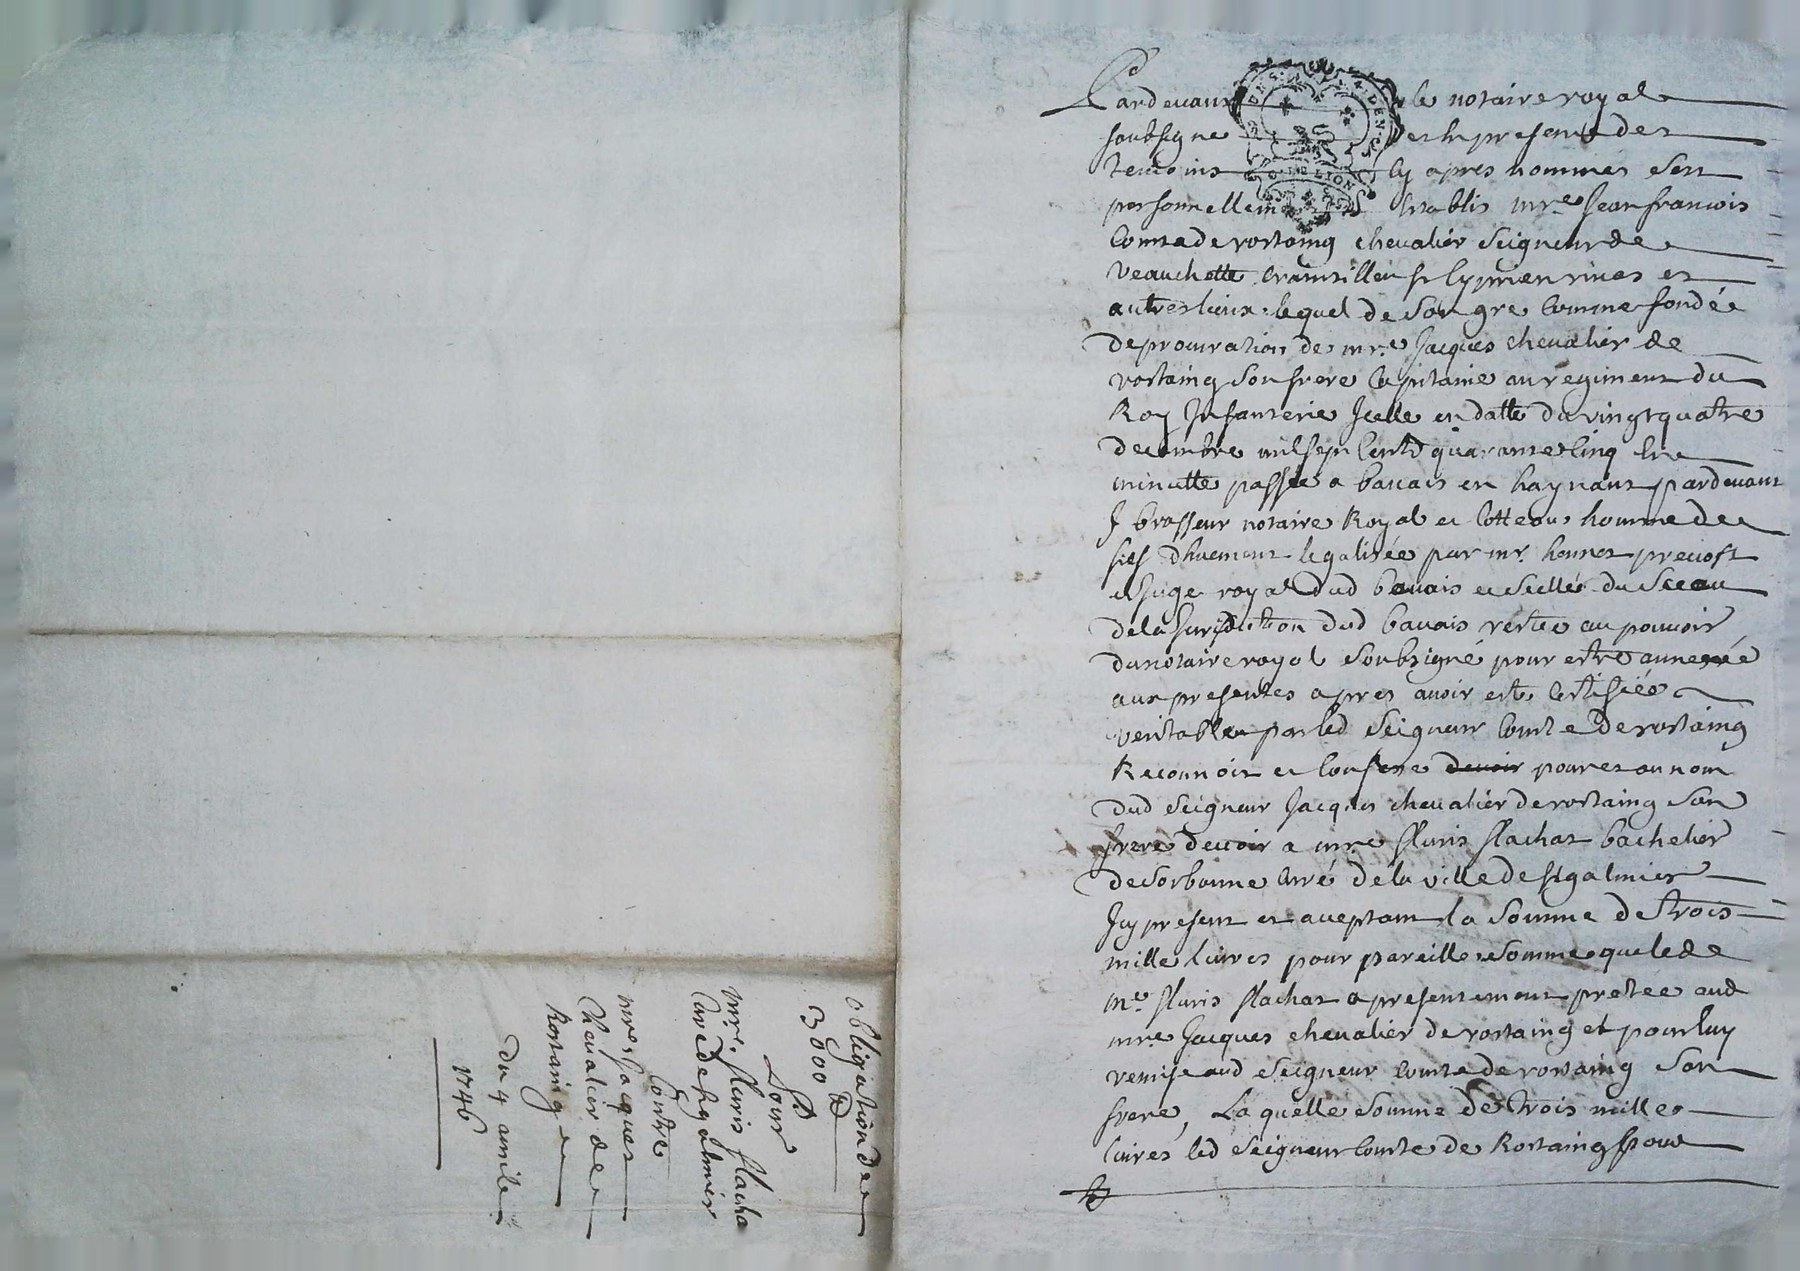 Pardevant le notaire royal
soubsigne et en presence des
temoins cy apres nommés sest
personnellemt establis mre Jean francois
Comte de rostaing chevalier Seigneur de
veauchette st Cyprien rivas et
autres lieux lequel de son gre Comme fondée
de procuration de mre Jacques chevalier de
rostaing son frere Capitaine au regiment du
Roy Infanterie Icelle en datte du vingt quatre
decembre mil sept Cents quarante Cinq la
minutte passée a bavais en haynaut pardevant
J brasseur notaire Royal et Cotteau homme de
fief dhuement legalisée par mr hennet prevost
et juge royal dud bavais et scellée du sceau
de la Jurisdiction dud bavais restée au pouvoir
du notaire royal soubsigné pour estre annexée
aux presentes apres avoir esté Certifiée
veritable par led seigneur Comte de rostaing
Reconnoit et Confesse devoir pour et au nom
dud seigneur Jacques chevalier de rostaing son
frere devoir a mre fluris flachat bachelier
de sorbonne Curé de la ville de st galmier
Icy present et acceptant la somme de trois
mille livres pour pareille somme que led
mre fluris flachat a presentement pretée aud
mre Jacques chevalier de rostaing et pour luy
remise aud seigneur Comte de rostaing son
frere, La quelle somme de trois milles
livres led seigneur Comte de Rostaing pour
obligation de
3000 ₶
Pour
mre. fluris flacha
Curé de st galmier
Contre
mre. Jacques
Chevalier de
Rostaing
du 4 avril
1746